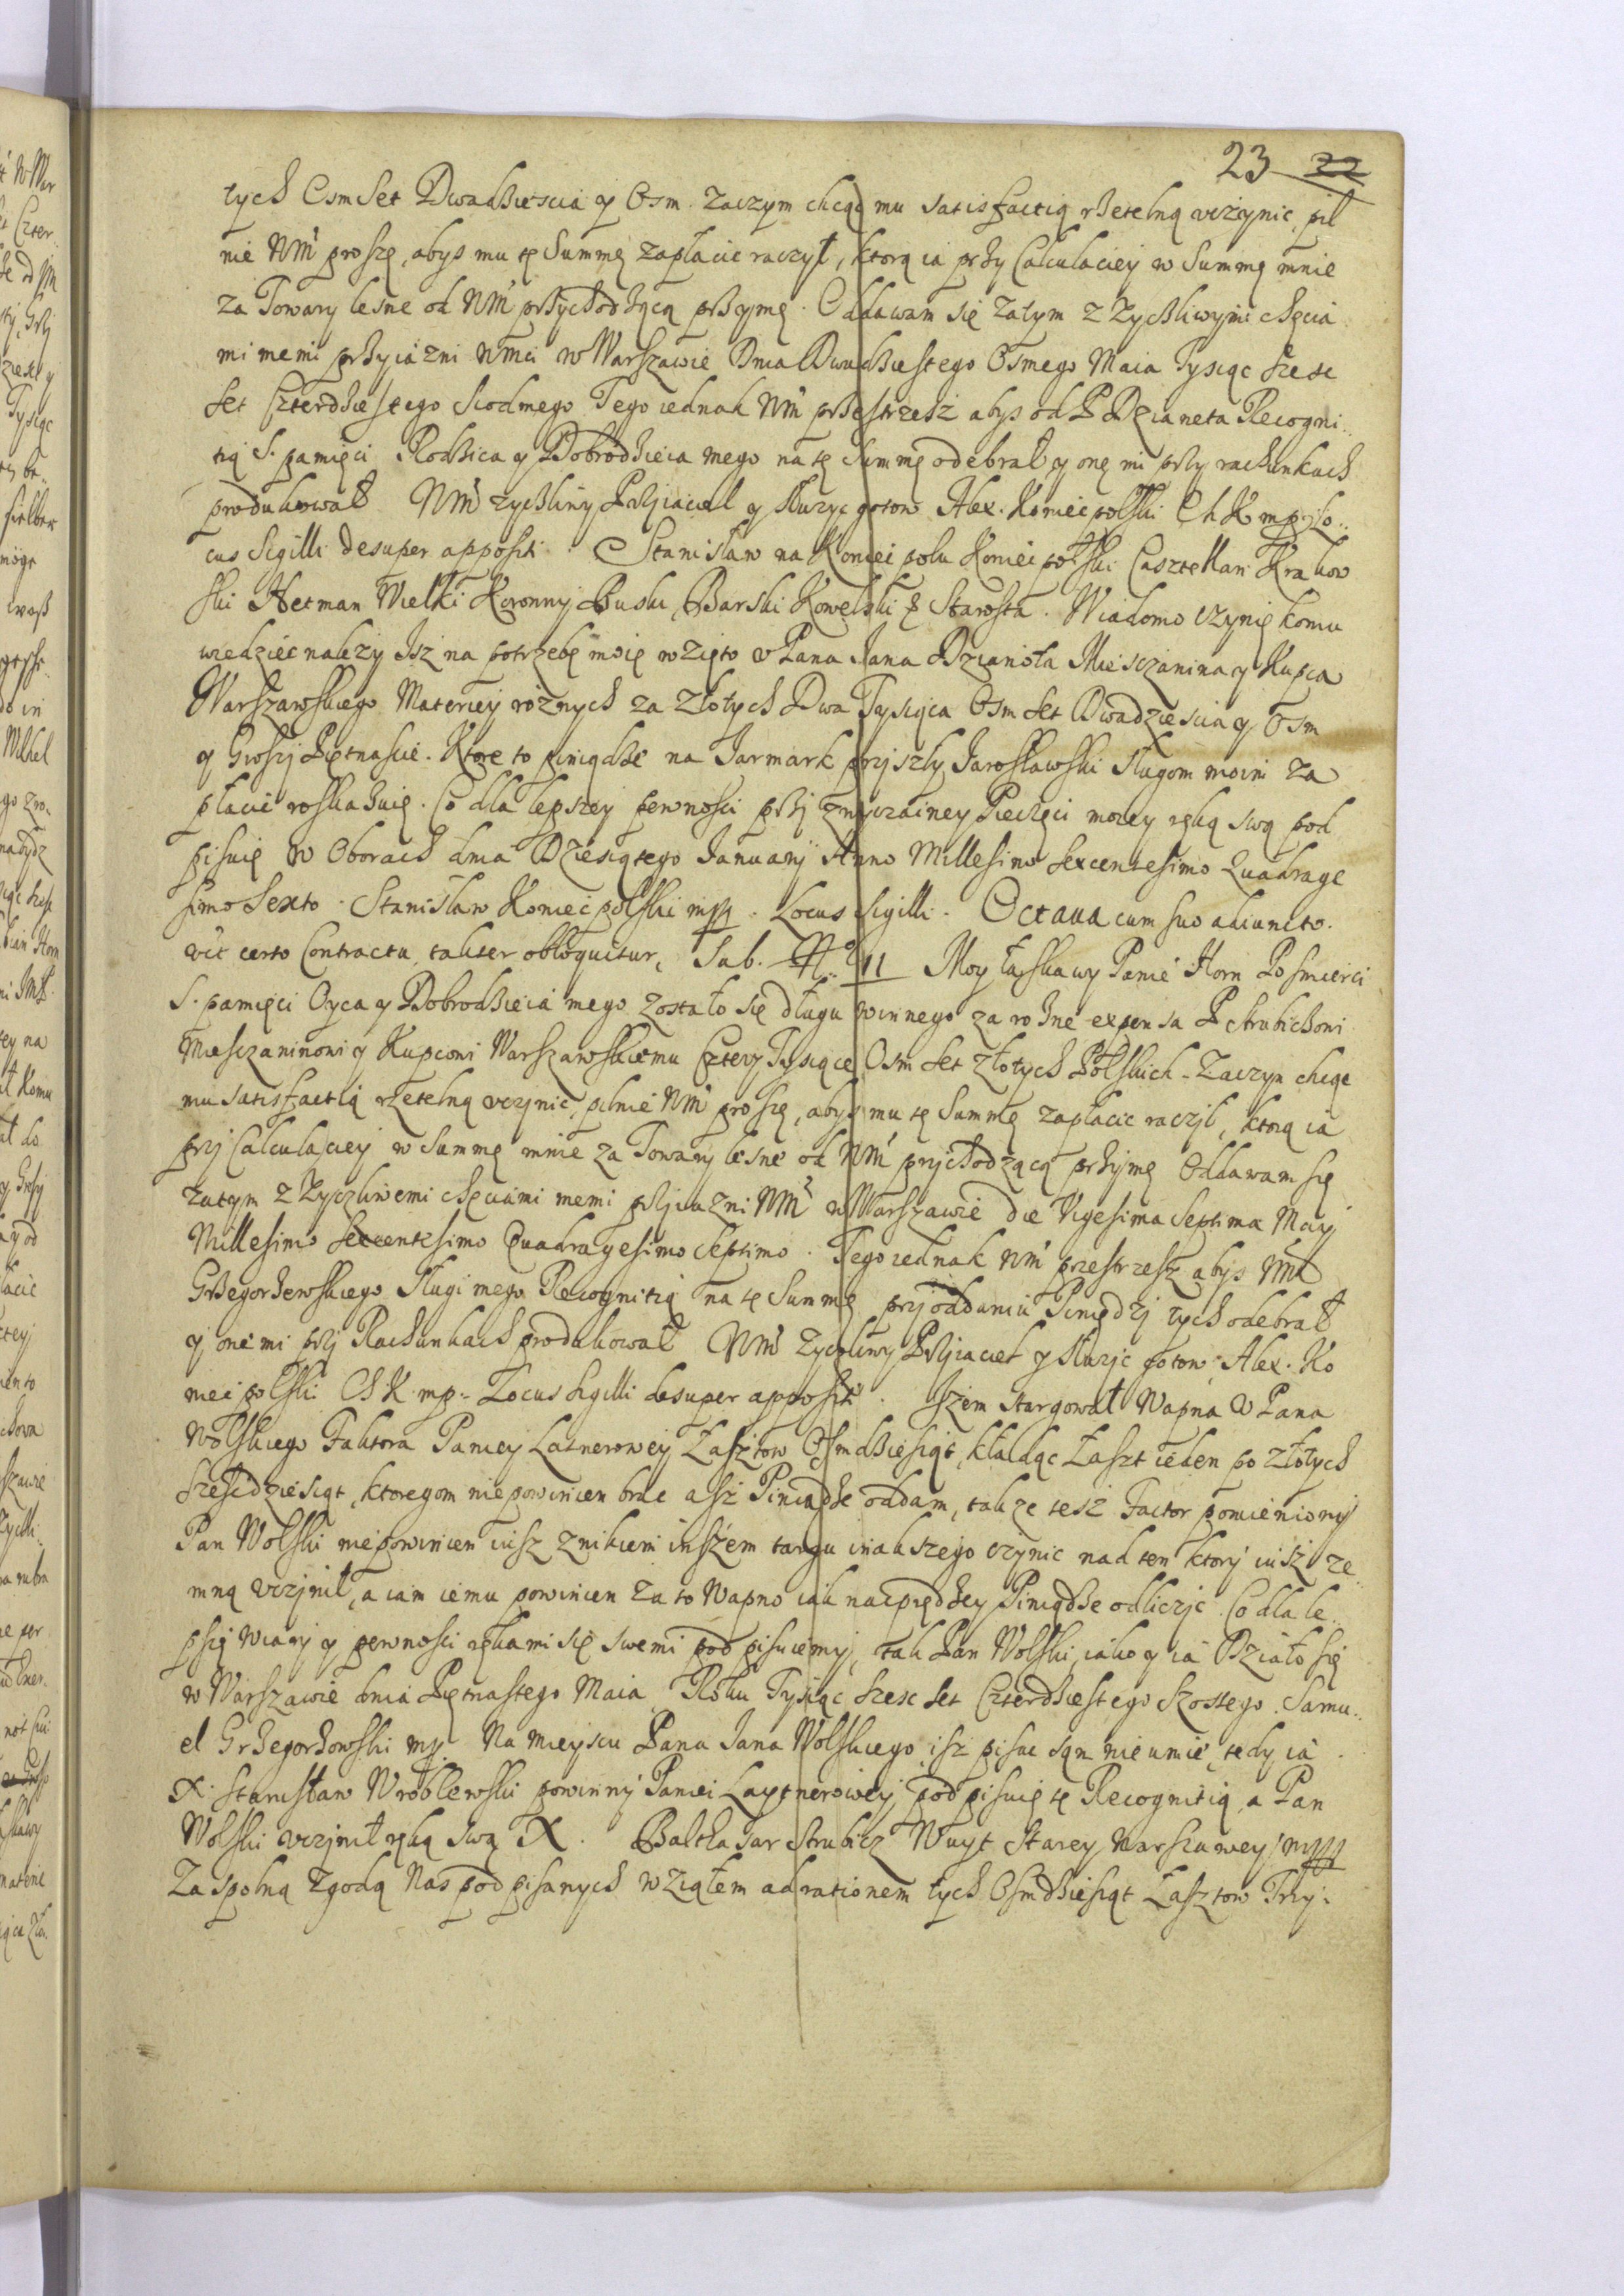 23 22
tych Osm Set Dwadziescia y Osm. Zaczym chcąc mu satisfactią rzetelną vczynic, pil
nie WM proszę, abys mu tę Summę zapłacic raczył, ktorą ia przy Calculaciey w Summę mnie
za Towary lesne od WM przychodzącą przyymę. Oddawam się zatym z Zyczliwymi chęcia
mi memi przyiazni WMci w Warszawie Dnia Dwudziestego Osmego Maia Tysiąc Szesc
Set Czterdziestego Siodmego Tego iednak WM przestrzesz abys od P Dzianeta Recogni..
tią S. pamięci Rodzica y Dobrodzieia mego na tę Summę odebrał y onę mi przy rachunkach
produkował WM zyczliwy Przyiaciel y Słuzyc gotow Alex. Koniecpolski Ch K mp. Lo..
cus Sigilli desuper appositi. Stanisław na Koniecpolu Koniecpolski Casztellan Krakow
ski Hetman Wielki Koronny Buski, Barski Kowelski & Starosta. Wiadomo czynię komu
wiedziec nalezy Isz na potrzebę moię wzięto v Pana Jana Dzianota Miesczanina y Kupca
Warszawskiego Materiey roznych za Złotych Dwa Tysiąca Osm Set Dwadziescia y Osm
y Groszy Piętnascie. Ktore to pieniądze na Jarmark przyszły Jarosławski sługom moim za
płacic roskazuię. Co dla lepszey pewnosci przy zwyczainey Pieczęci moiey ręką swą pod
pisuię w Oborach dnia Dziesiątego Januarij Anno Millesimo Sexcentesimo Quadrage
simo Sexto. Stanisław Koniecpolski mpp. Locus Sigilli. Octaua cum suo adiuncto.
vit certo Contractu taliter obloquitur, Sub. No. 11 Moy łaskawy Panie Horn Po smierci
S. pamięci Oyca y Dobrodzieia mego zostało się długu winnego za rozne expensa P Strubiczowi
Miesczaninowi y Kupcowi Warszawskiemu Cztery Tysiące Osm Set złotych Polskich. Zaczym chcąc
mu satisfactią rzetelną vczynic, pilnie WM proszę, abys mu tę Summę zapłacic raczył, ktorą ia
przy Calculaciey w Summę mnie za Towary lesne od WM przychodzącą przyymę Oddawam się
zatym z Zyczliwemi chęciami memi przyiazni WM w Warszawie die Vigesima Septima Maij
Millesimo Sexcentesimo Quadragesimo Septimo. Tego iednak WM przestrzesz abys v Imci
Grzegorzewskiego Sługi mego Recognitią na tę Summę przy oddaniu Pieniędzy tych odebrał
y one mi przy Rachunkach produkował WM Zyczliwy Przyiaciel y Słuzyc gotow Alex. Ko
niecpolski Ch K mp. Locus Sigilli desuper appositi. Iszem stargował Wapna v Pana
Wolskiego Faktora Paniey Latnerowey Łasztow Osmdziesiąt, kładąc Łaszt ieden po złotych
Szescdziesiąt, ktoregom nie powinien brac asz Pieniądze oddam, takze tesz Factor pomieniony
Pan Wolski nie powinien iusz z nikiem inszem targu inakszego czynic nad ten ktory iusz ze..
mną vczynił, a iam iemu powinien za to Wapno iak naprędzey Pieniądze odliczyc. Co dla le..
pszy wiary y pewnosci rękami się swemi podpisuiemy, tak Pan Wolski, iako y ia Działo się
w Warszawie dnia Piętnastego Maia Roku Tysiąc Szesc Set Czterdziestego Szostego. Samu..
el Grzegorzowski mp. Na mieyscu Pana Jana Wolskiego isz pisac sąm nie umie, tedy ia
X. Stanisław Wroblewski powinny Paniei Laytnerowey podpisuię tę Recognitią, a Pan
Wolski vczynił ręką swą X. Balthasar Strubicz Wuyt Starey Warszawey mpp
Za spolną zgodą Nas podpisanych wziąłem ad rationem tych Osmdziesiąt Łasztow Trzy.